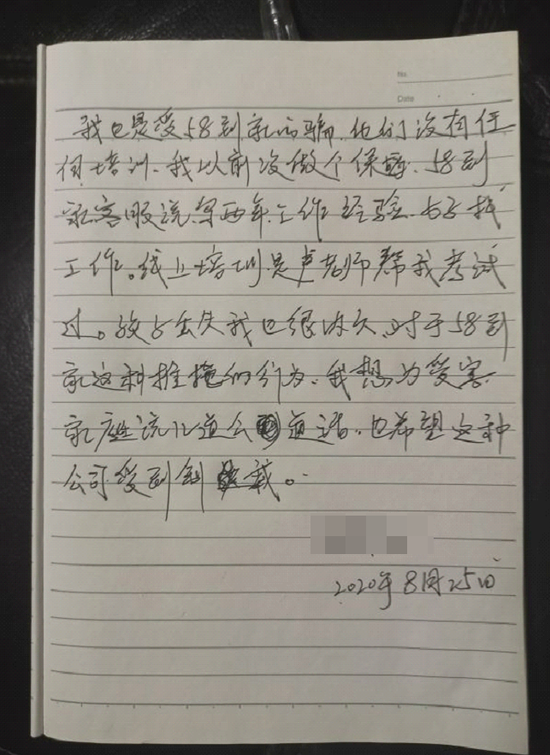 No
Date
我也是受58到家的骗,他们没有任
何培训、我以前没做个保姆、58到
家客服说,写两年工作经验、好找
工作。线上培训是卢老师帮我考试
过。我也很内失、对于58到
家这种推掩的行为、我想为受害
家庭说几道公道话,也希望这种
公司受到制裁。
2020年8月25日